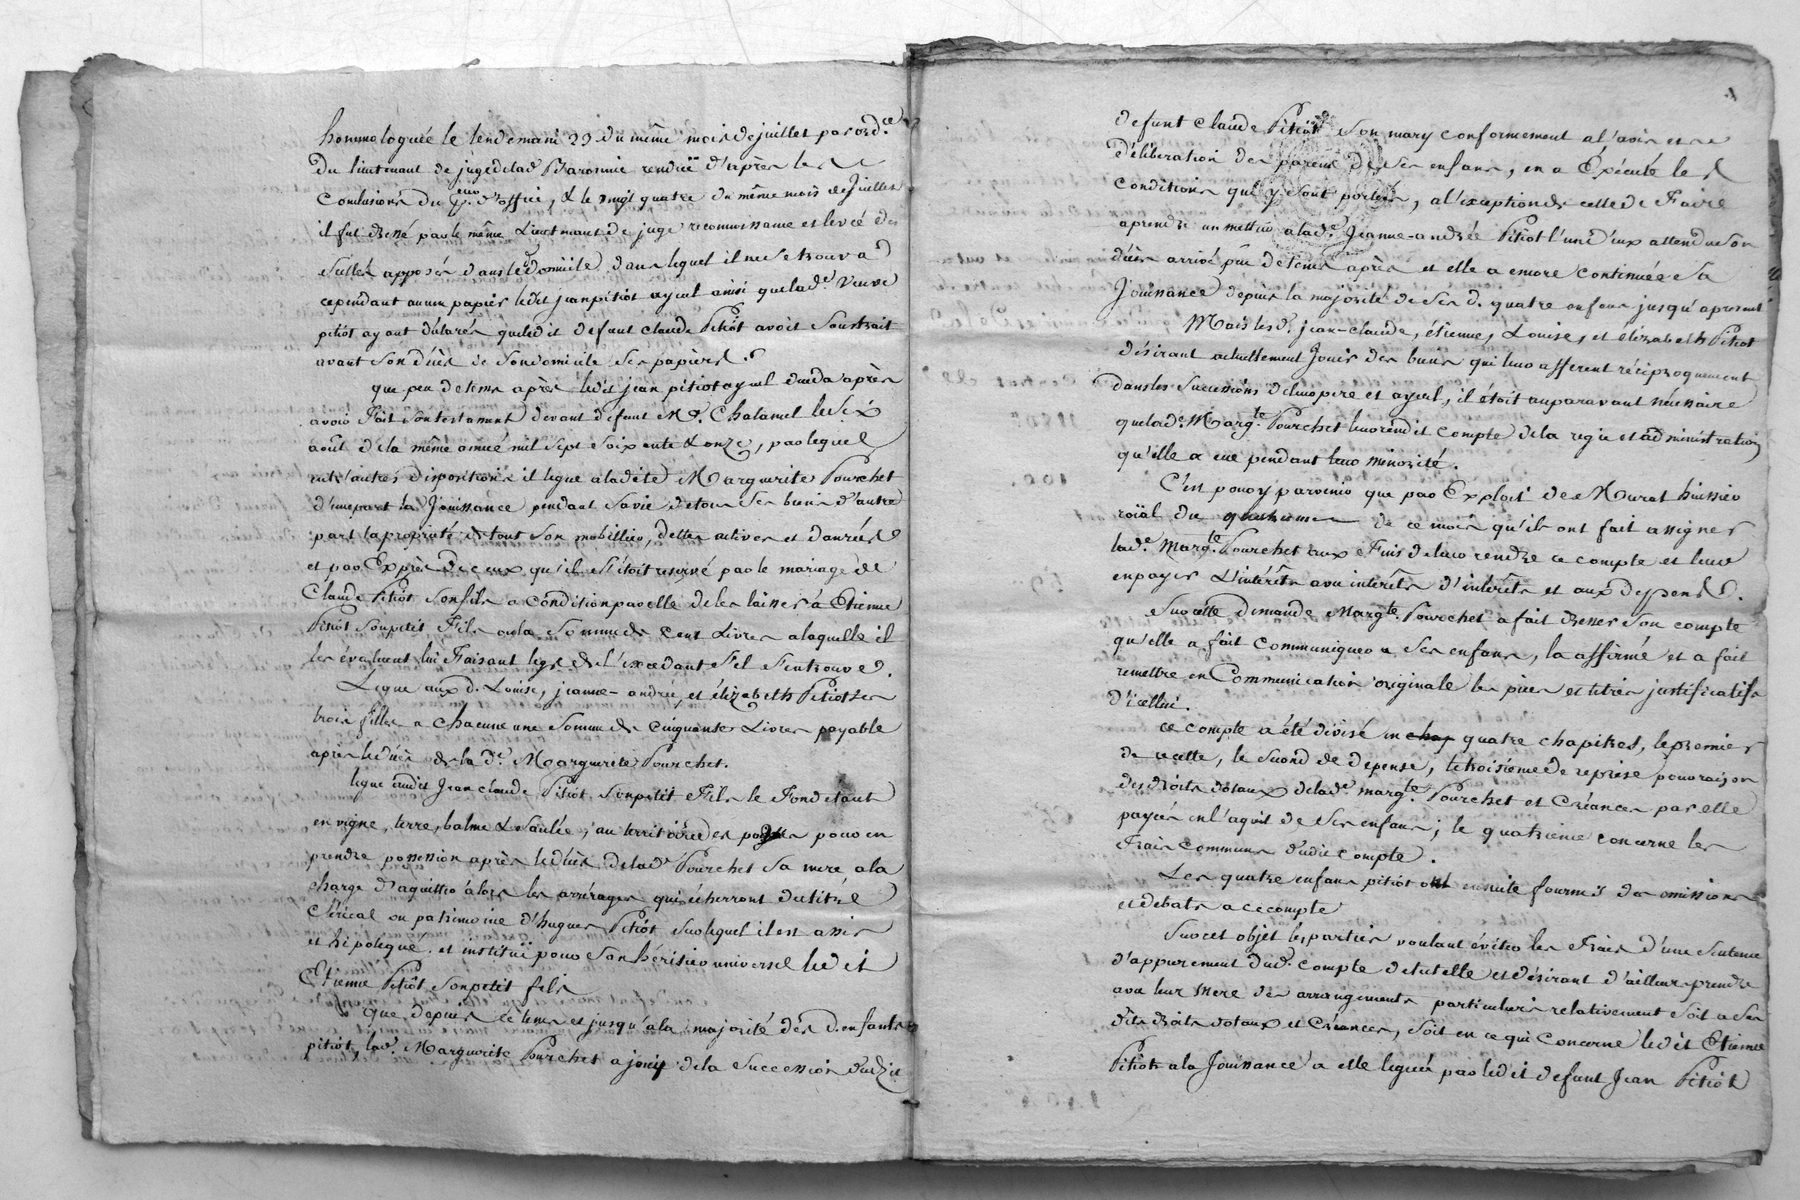 hommologuée le lendemain 23 du même mois de juillet par ord.ce
du lieutenant de juge de lad.e Baronnie rendüe d'après les
Conclusions du p.eur d'office, & le vingt quatre du même mois de Juillet
il fut dressé par le même Lieutenant de juge reconnoissance et levée des
scellés apposés dans le d. domicile dans lequel il ne se trouva
cependant aucun papier ledit jean pitiot ayeul ainsi que lad.e veuve
pitiot ayant déclarés que ledit defunt claude Pitiot avoit soustrait
avant son décès de son domicile ses papiers.
que peu de tems après ledit jean pitiot ayeul décéda après
avoir Fait son testament devant defunt M.e Chalamel le six
août de la même année mil sept soixante & onze, par lequel
entr'autres dispositions il legue a ladite Marguerite Pourchet
d'une part la Jouissance pendant sa vie de tous ses biens d'autre
part la propriété de tout son mobillier, dettes actives et danrées
et par Exprès de ceux qu'il s'étoit reservé par le mariage de
Claude Pitiot son fils a condition par elle de les laisser à Etienne
Pitiot son petit Fils ou la somme de Cent Livres a laquelle il
les évaluent lui Faisant legs de l'excedant s'il s'en trouve.
Legue aux d. Louise, jeanne-andrée, et élizabeth Pitiot ses
trois filles a chacune une somme de Cinquante Livres payable
après le décès de la d.e Marguerite Pourchet.
legue audit Jean claude Pitiot son petit Fils le Fond étant
en vigne, terre, balme & Saulée, au territoire des pour en
prendre possession après le décès de lad.e Pourchet sa mere a la
charge d'aquitter alors les arrérages qui écherront du titre
Clérical ou patrimoine d'hugues Pitiot sur lequel il est assis
et hipotéqué. et institüe pour son héritier universel ledit
Etienne Pitiot son petit fils
que depuis ce tems et jusqu'a la majorité des d. enfants
pitiot, lad.e Marguerite Pourchet a jouis de la succession dudit
defunt claude Pitiot son mary conformement a l'avis et
délibération des parens de ses enfans, en a Exécuté les
conditions qui y sont portées, a l'exception de celle de Faire
aprendre un mettier a lad.e Jeanne-andrée Pitiot l'un d'eux attendu son
décès arrivé peu de tems après et elle a encore continuée sa
Jouissance depuis la majorité de ses d. quatre enfans jusqu'apresent
Mais lesd.s jean-claude, étienne, Louise, et élizabeth Pitiot
désirant actuellement Jouir des biens qui leur afferent réciproquement
dans les successions de leur pere et ayeul, il étoit auparavant nécessaire
que lad.e Marg.te Pourchet leur rendit compte de la regie et administration
qu'elle a eue pendant leur minorité.
C'est pour y parvenir que par Exploit de Murat huissier
roïal du de ce mois qu'ils ont fait assigner
lad.e Marg.te Pourchet aux Fins de leur rendre ce compte et leur
en payer L'intérêts avec intérêts d'intérêts et aux dépens.
Sur cette demande Marg.te Pourchet a fait dresser son compte
qu'elle a fait communiquer a ses enfans, la affirmé et a fait
remettre en Communication originale les pieces et titres justificatifs
d'icelluï.
ce compte a été divisé en chap quatre chapitres, le premier
de recette, le second de depense, le troisieme de reprise pour raison
des droits dotaux de lad.e marg.te Pourchet et Créances par elle
payées en l'aquit de ses enfans; le quatrieme concerne les
Frais communs dudit compte.
Les quatre enfans pitiot ont ensuite fournis des omissions
et debats a ce compte
Sur cet objet les parties voulant éviter les Frais d'une sentence
d'appurement dud.t compte de tutelle et désirant d'ailleur prendre
avec leur Mere des arrangements particuliers relativement soit a ses
dits droits dotaux et Créances, soit en ce qui concerne ledit Etienne
Pitiot a la Jouissance a elle leguée par ledit defunt Jean Pitiot